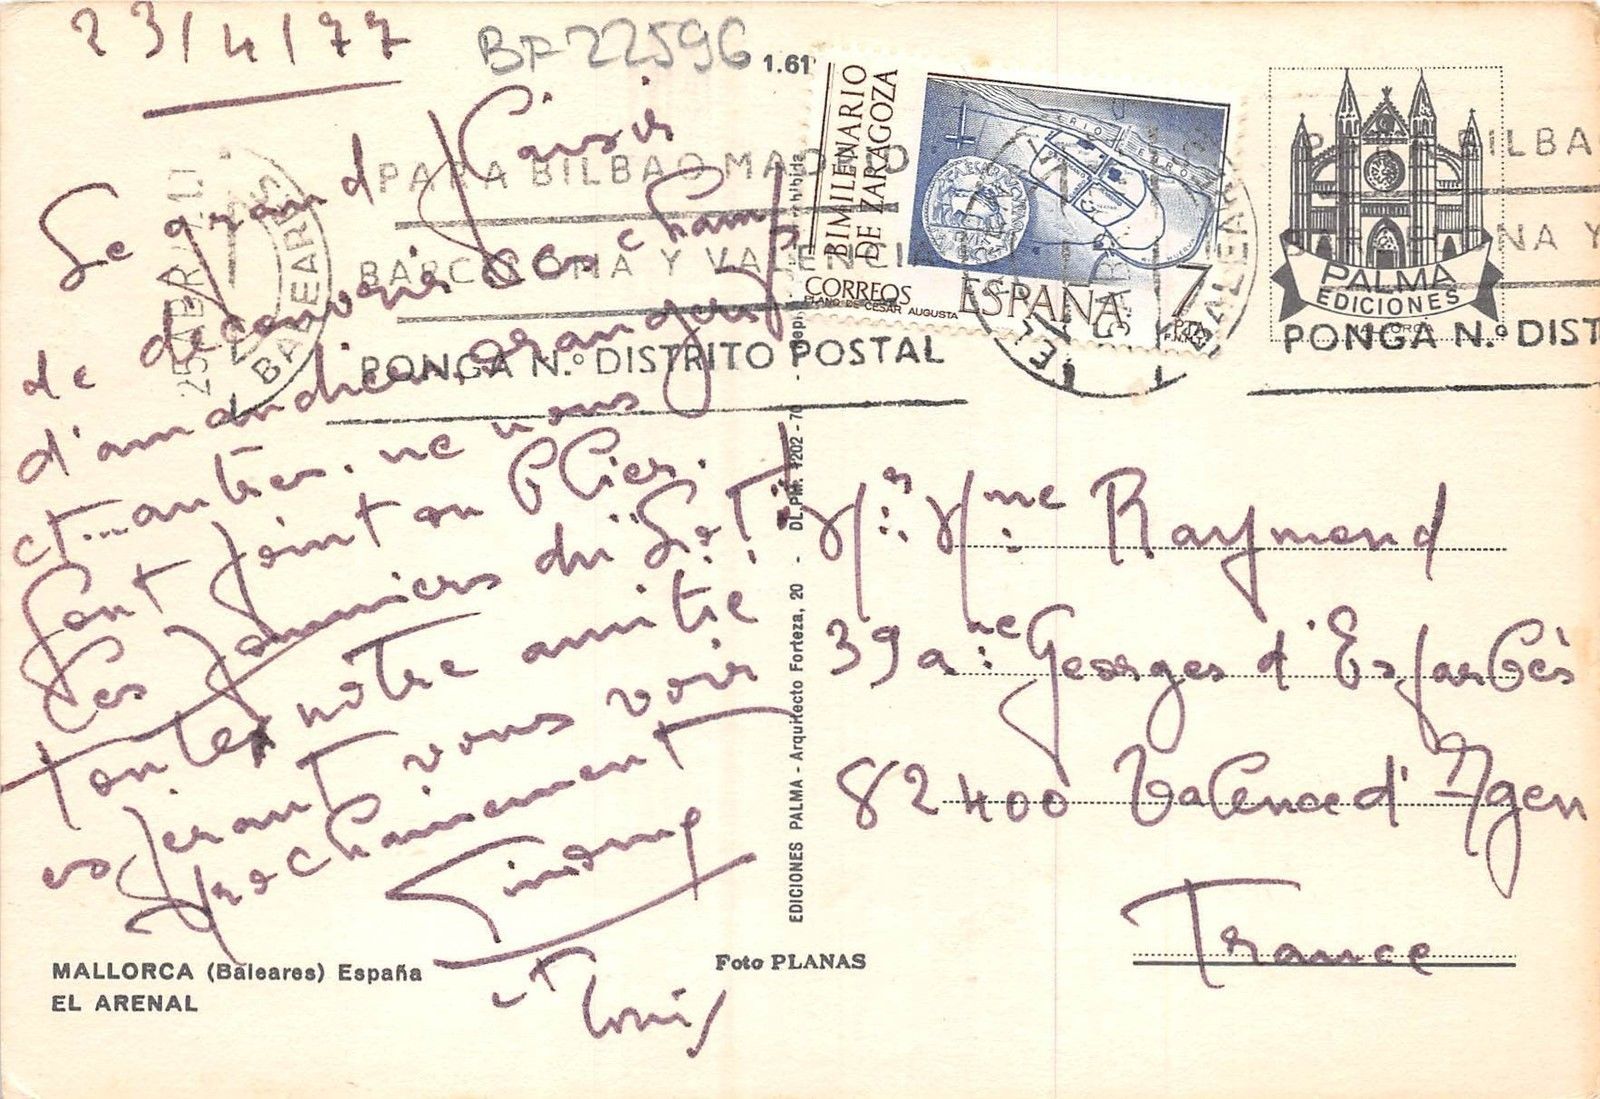 23/4/77
BF 22596
1.61
Le grand plaisir
de découvrir ces champs
d'amandiers, orangers
et... autres. ne nous
font point oublier.
les pruniers du "Lot"!
Toute notre amitié
espérant vous voir
prochainement
Simone
et Louis
MALLORCA (Baleares) España
EL ARENAL
Foto PLANAS
EDICIONES PALMA - Arquitecto Forteza, 20 - DL.PM. 1202 - 70
25 ABR
BALEARES
PARA BILBAO MADRID
BARCELONA Y VALENCIA
PONGA N.º DISTRITO POSTAL
BIMILENARIO
DE ZARAGOZA
CORREOS
PLANO DE CESAR AUGUSTA
ESPAÑA
7
PTA
F.N.M.T.
BALEARES
PARA BILBA
BARCELONA Y
PONGA N.º DIST
PALMA
EDICIONES
MALLORCA
Mr. Mme Raymond
39 a. Georges d'Esparbès
82400 Valence d'Agen
France